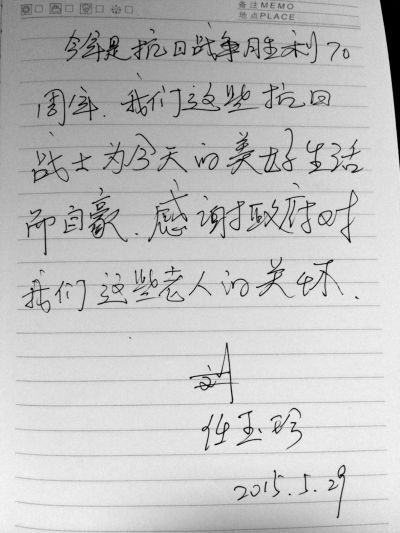 备注MEMO
地点PLACE
今年是抗日战争胜利70
周年.我们这些抗日
战士为今天的美好生活
而自豪.感谢政府对
我们这些老人的关怀.
刘
任玉珍
2015.5.29